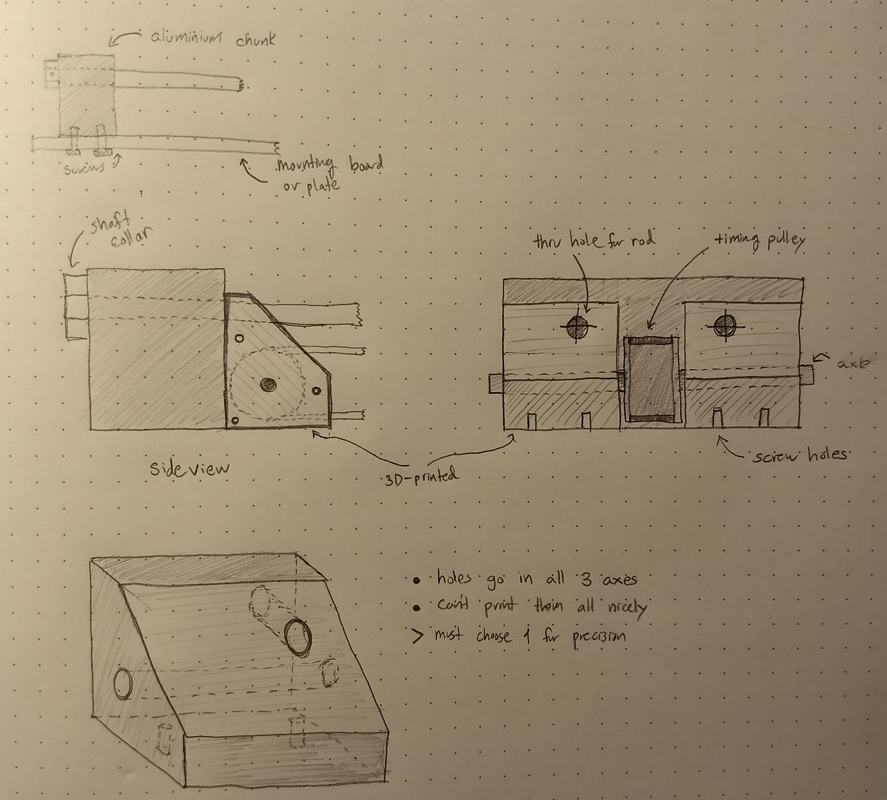 aluminium chunk
screws
mounting board
or plate
shaft
collar
thru hole for rod
timing pulley
axle
side view
3D-printed
screw holes
• holes go in all 3 axes
• can't print them all nicely
> must choose 1 for precision